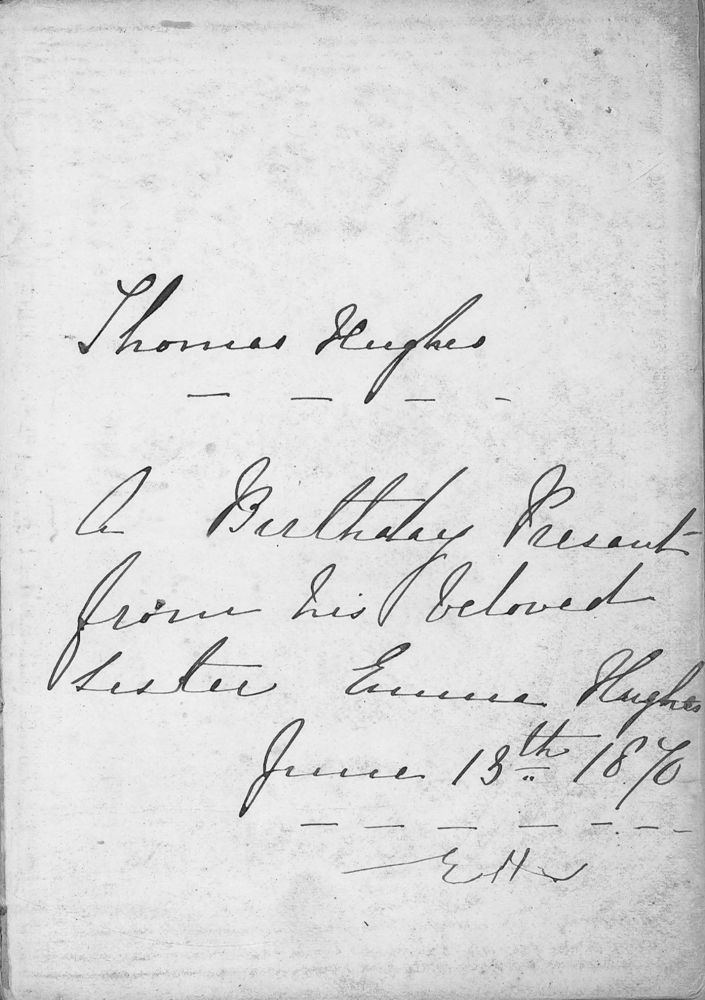 Thomas Hughes
A Birthday Presant
from his beloved
sister Emma Hughes
June 13th 1870
EH